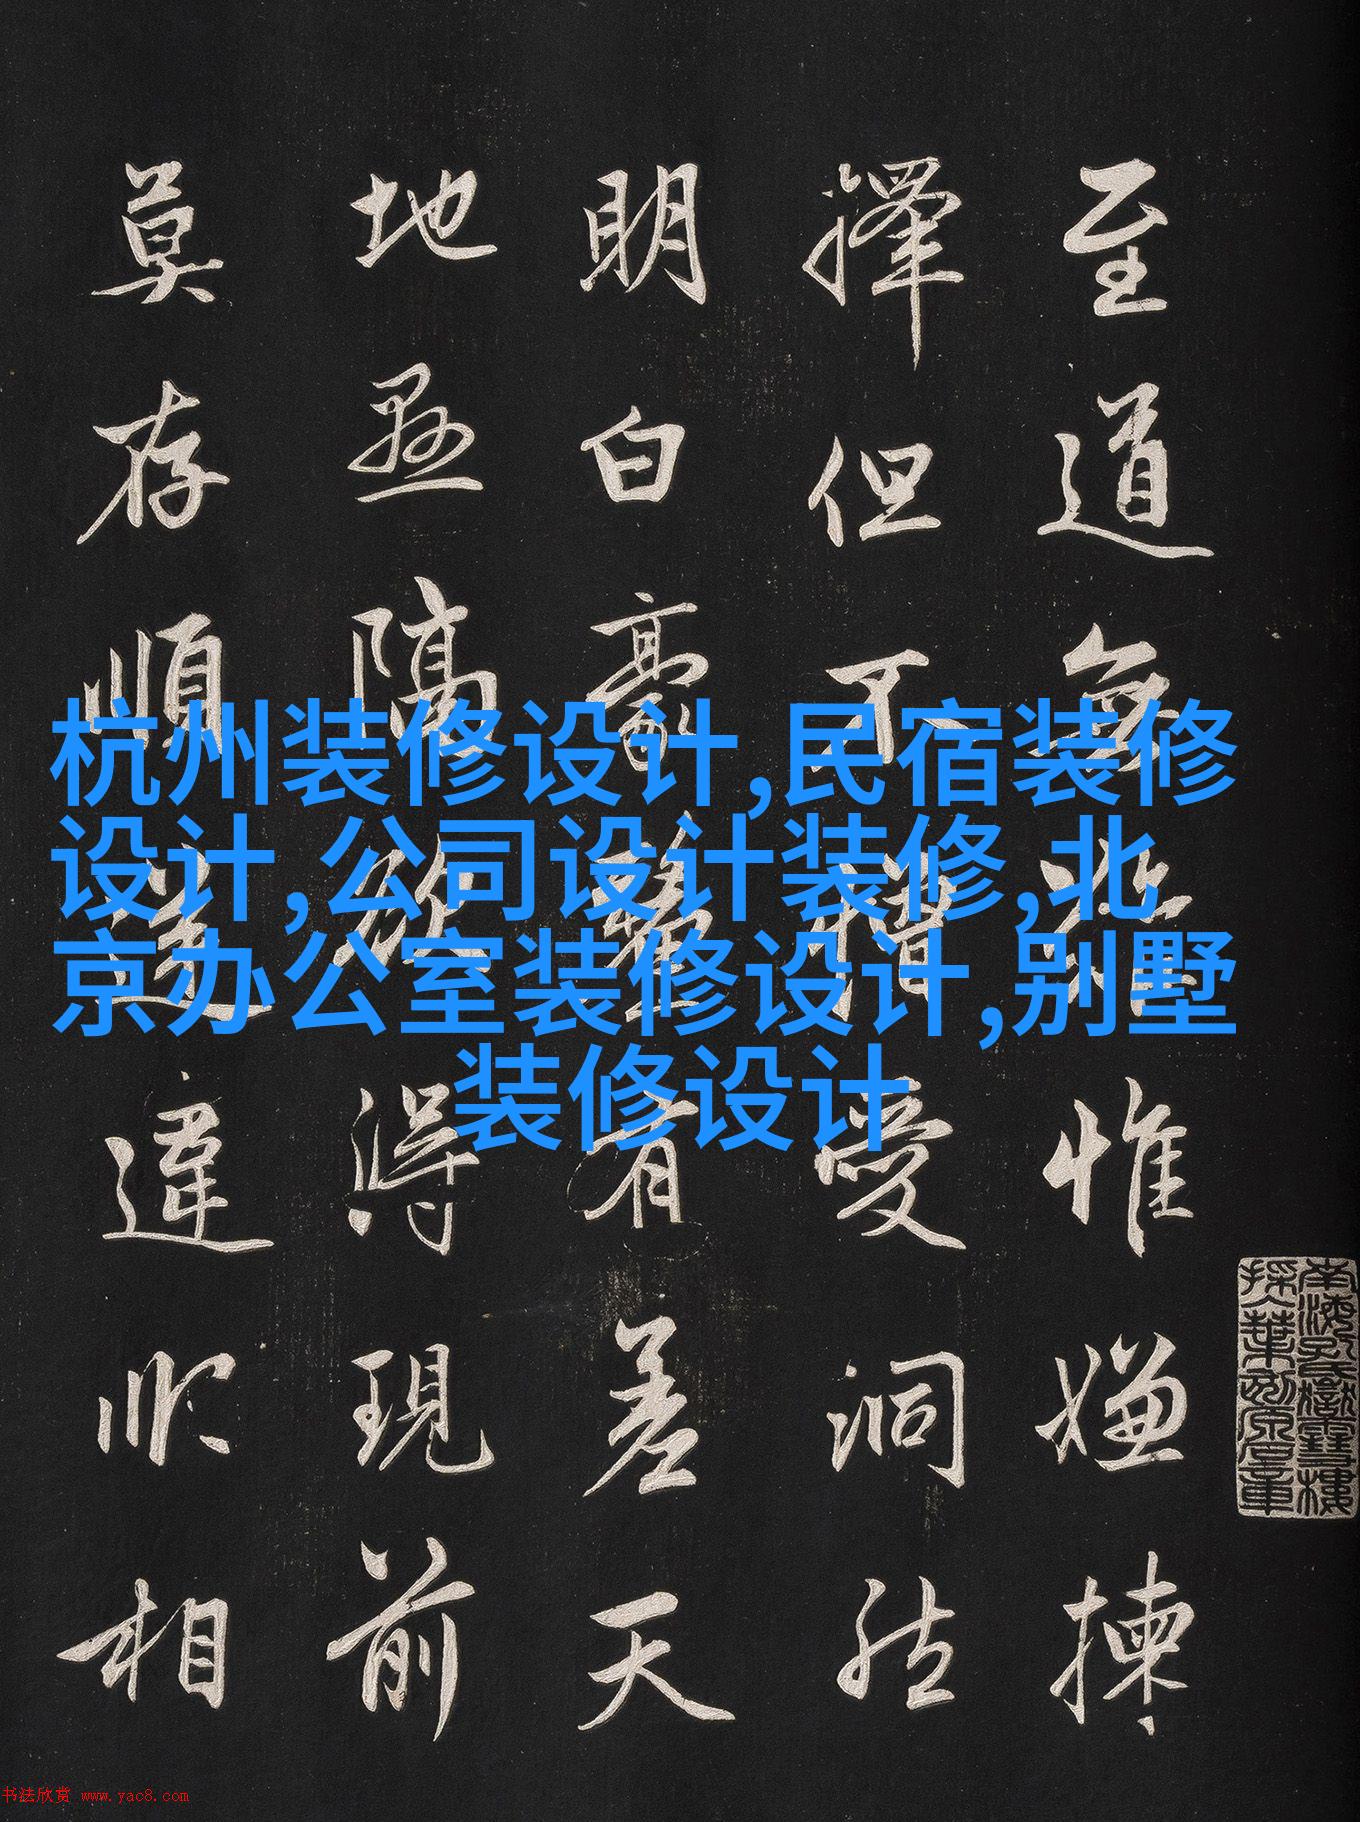 至道無難惟嫌揀
擇但不憎愛洞然
明白毫釐有差天
地懸隔欲得現前
莫存順逆違順相
杭州装修设计,民宿装修
设计,公司设计装修,北
京办公室装修设计,别墅
装修设计
南海孔氏嶽雪樓
书法欣赏 www.yac8.com